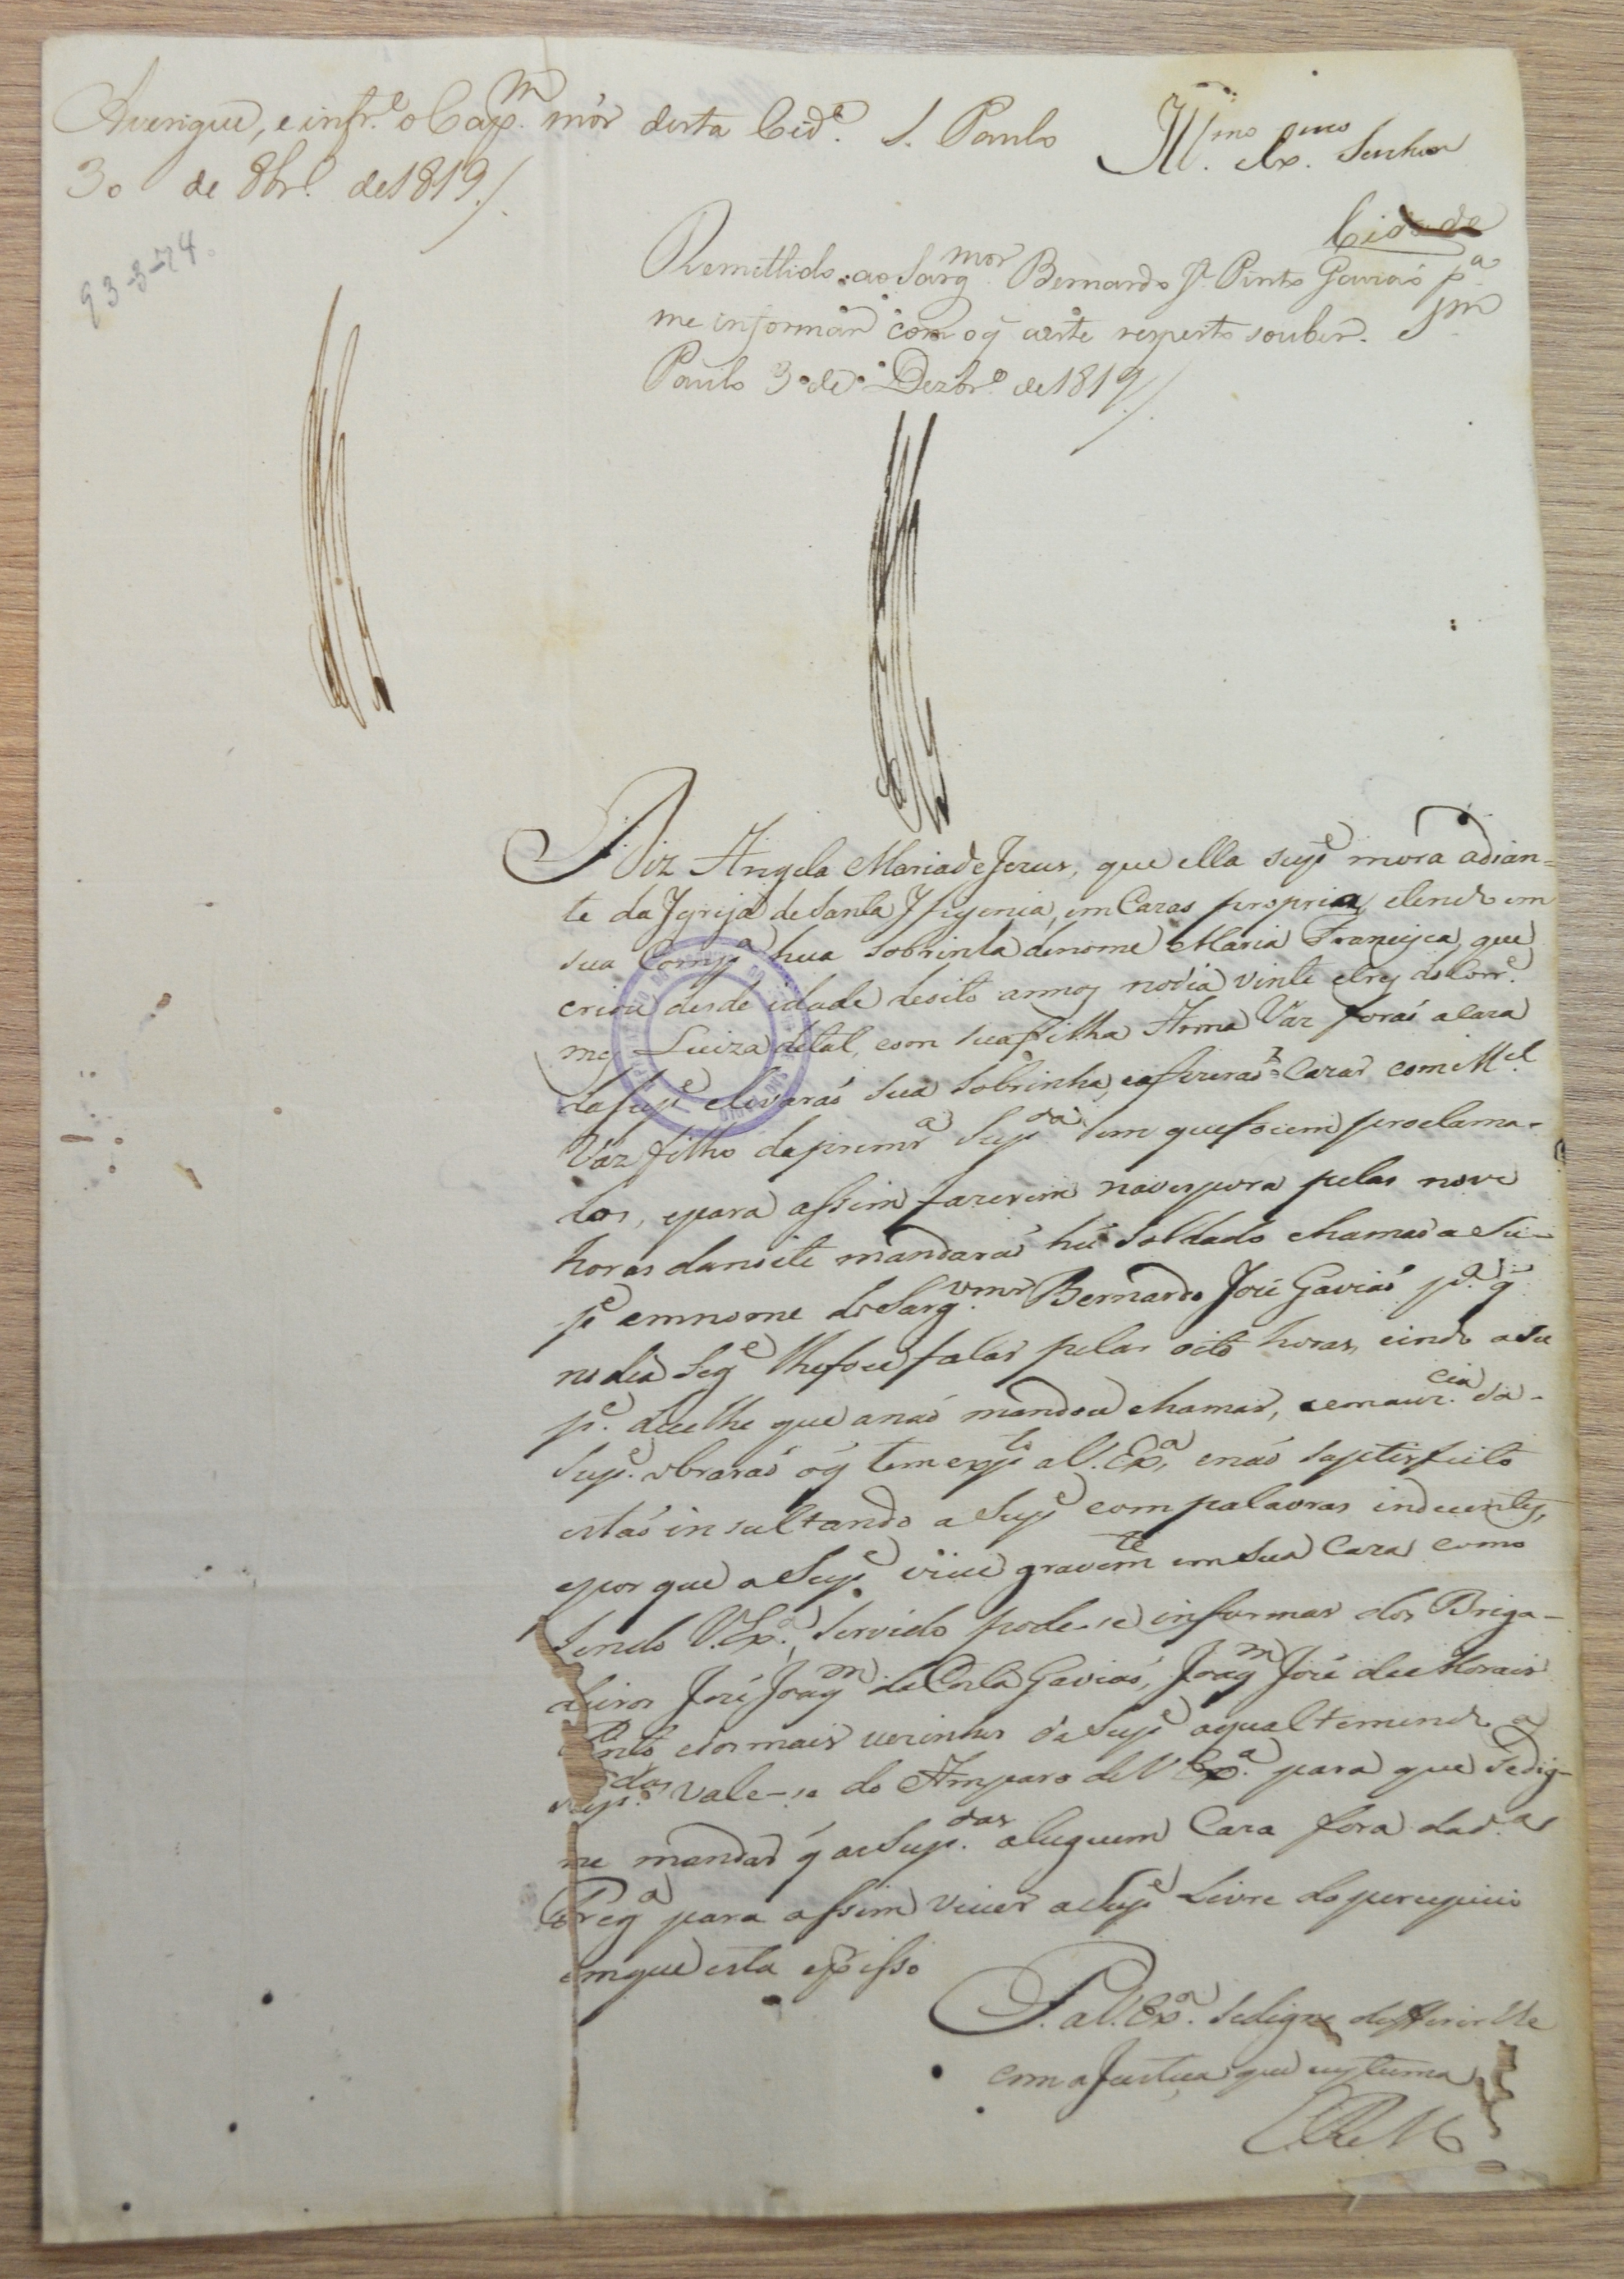 Averigue, e infr.e o Cap.m mór desta Cid.e S. Paulo
30 de 8br.o de 1819 //.
93-3-74.
Ill.mo Ex.mo Senhor
Cidade
Remettido ao Sarg.mor Bernardo J.e Pinto Gaviaõ p.a
me informar com o q̃ aeste respeito souber. S.m
Paulo 3 de Dezbr.o de 1819 //.
Diz Angela Maria de Jezus, que ella Sup.e mora adian=
te da Igreja de Santa Ifigenia, em Cazas propria, e tendo em
sua Comp.a hua sobrinha de nome Maria Francisca, que
criou desde idade de oito annos no dia vinte e tres do Corr.e
mes Luiza de tal, com sua filha Anna Vaz foraõ a Caza
da Sup.e e levaraõ sua Sobrinha, e a fizeraõ Cazar com M.el
Vaz filho da prim.a Sup.da sem que focem proclama-
dos, e para assim fazerem na vespora pelas nove
horas da noite mandaraõ hú Soldado chamar a Su-
p.e em nome do Sarg.mor Bernardo José Gaviaõ p.a q̃
no dia Seg.e lhe foce falar pelas oito horas, e indo a Su
p.e dice lhe que a naõ mandou chamar, e em auz.cia da
Sup.e obraraõ o q̃ tem exp.to a V. Ex.a, e naõ satisfeito
estaõ insultando a Sup.e com palavras indecentes,
e por que a Sup.e vive gravem.te em sua Caza como
sendo V. Ex.a servido pode-se informar dos Briga-
deiros José Joaq.m da Costa Gaviaõ, Joaq.m José de Morais
Pinto e dos mais vezinhos da Sup.e a qual temendo a
Sup.das vale-se do Amparo de V Ex.a para que se dig-
ne mandar q̃ as Sup.das aluguem Caza fora da d.a
Freg.a para assim viver a Sup.e Livre do percepicio
em que esta e p isso
P. a V. Ex.a se digne defferir lhe
com a Justiça que custuma
E R M